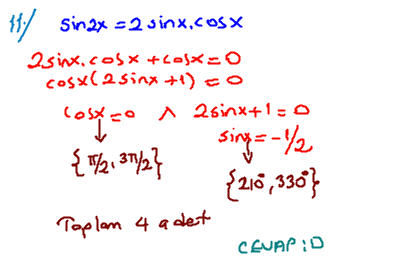 11/ sin2x = 2 sinx.cosx
2sinx.cosx + cosx = 0
cosx(2sinx+1) = 0
cosx = 0 ∧ 2sinx+1 = 0
sinx = -1/2
{π/2, 3π/2}
{210°, 330°}
Toplam 4 adet
CEVAP: D